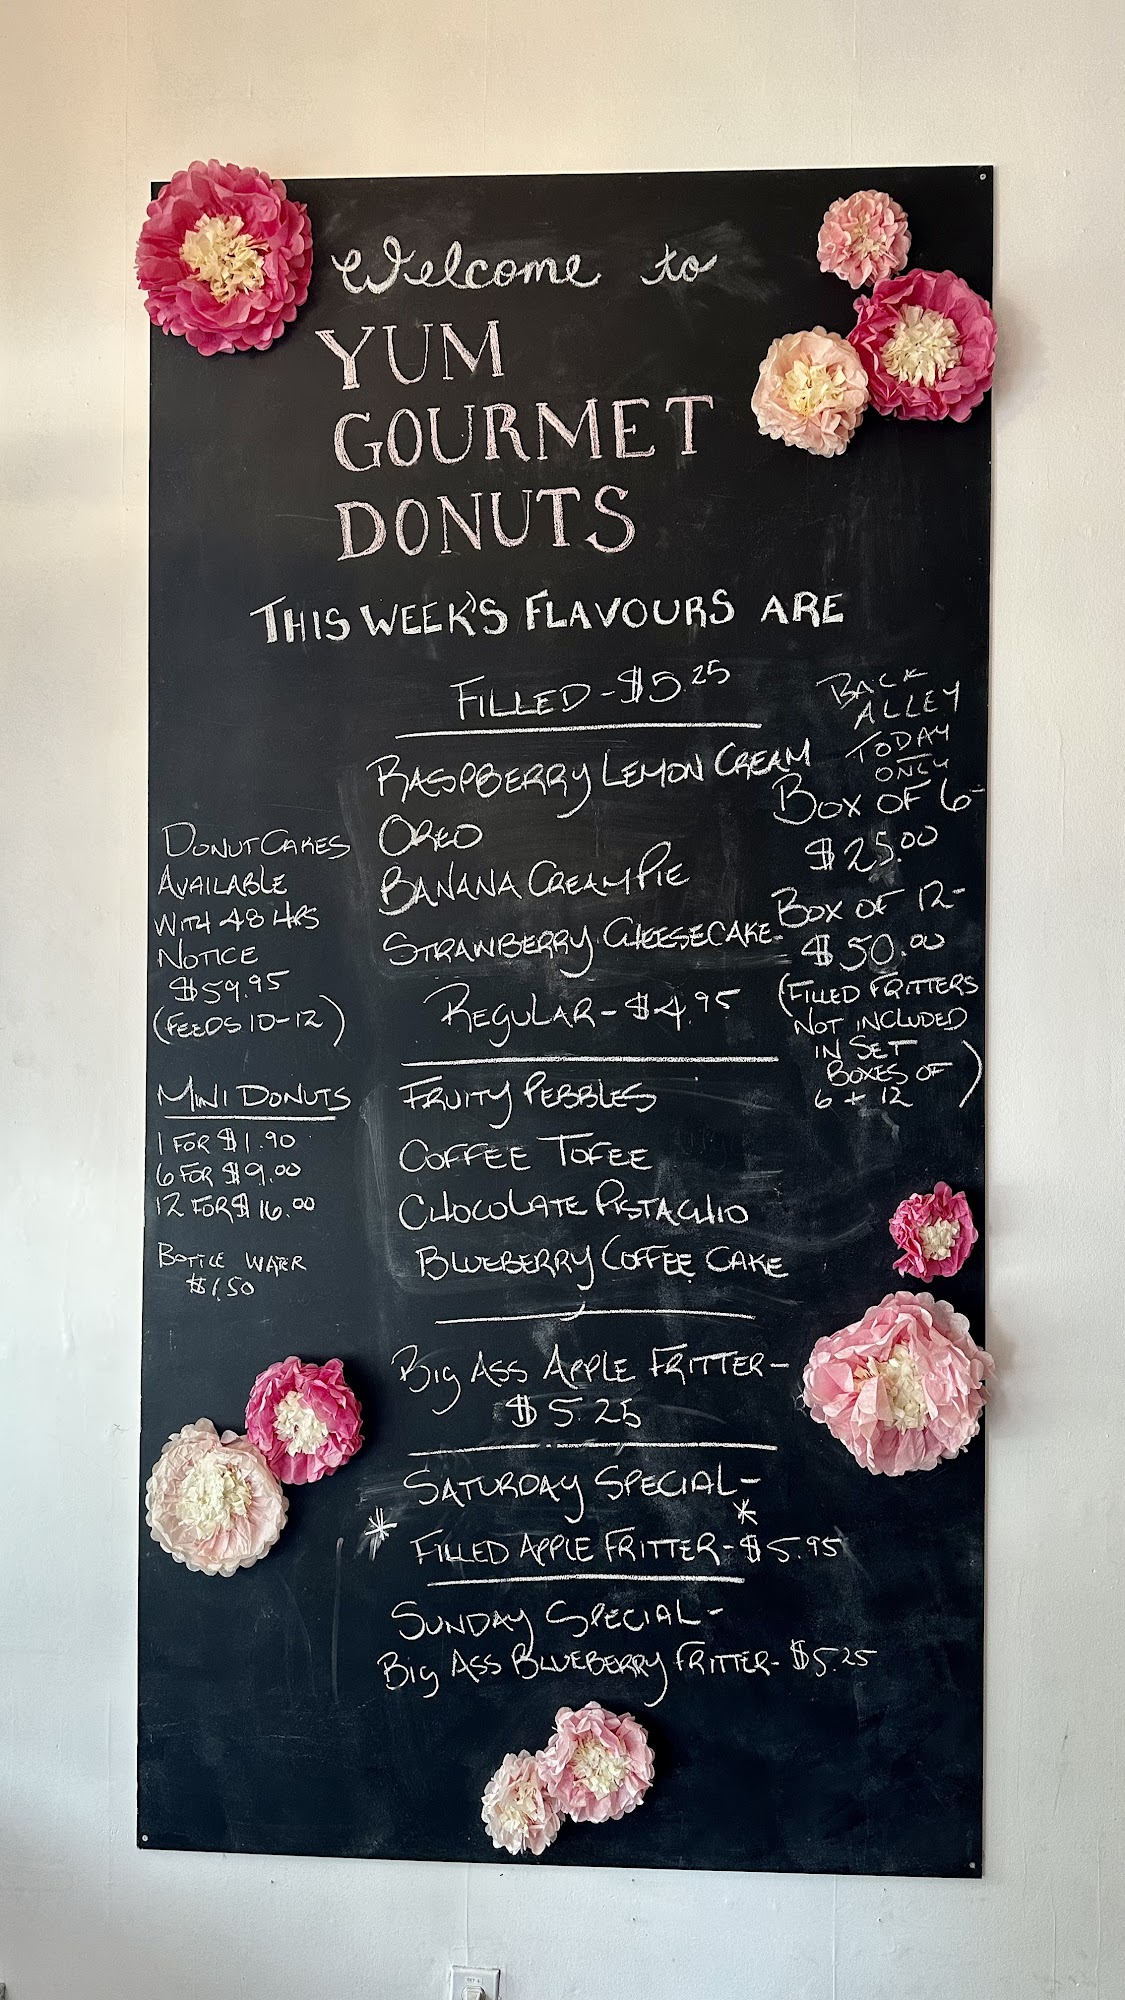 Welcome to
YUM
GOURMET
DONUTS
THIS WEEK'S FLAVOURS ARE
FILLED - $5.25
RASPBERRY LEMON CREAM
OREO
BANANA CREAM PIE
STRAWBERRY CHEESECAKE
REGULAR - $4.95
FRUITY PEBBLES
COFFEE TOFEE
CHOCOLATE PISTACHIO
BLUEBERRY COFFEE CAKE
BIG ASS APPLE FRITTER -
$5.25
SATURDAY SPECIAL -
* FILLED APPLE FRITTER - * $5.95
SUNDAY SPECIAL -
BIG ASS BLUEBERRY FRITTER - $5.25
DONUT CAKES
AVAILABLE
WITH 48 HRS
NOTICE
$59.95
(FEEDS 10-12)
MINI DONUTS
1 FOR $1.90
6 FOR $9.00
12 FOR $16.00
BOTTLE WATER
$1.50
BACK
ALLEY
TODAY
ONLY
BOX OF 6 -
$25.00
BOX OF 12 -
$50.00
(FILLED FRITTERS
NOT INCLUDED
IN SET
BOXES OF
6 + 12)